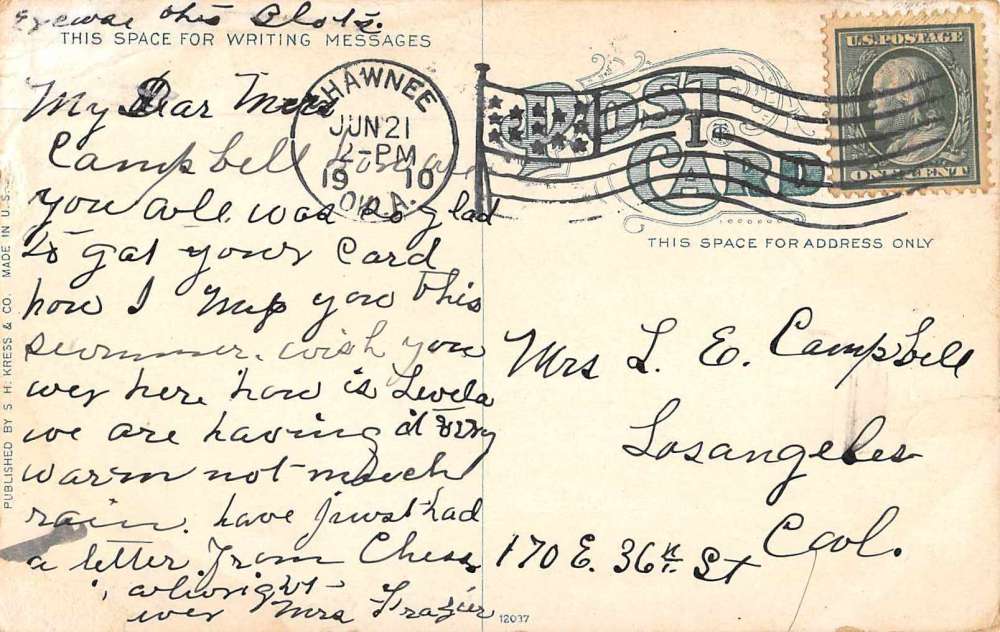 Excuse this Blots.
THIS SPACE FOR WRITING MESSAGES
My Dear Mrs
Campbell how are
you alle was so glad
to gat your Card
how I miss you this
summer. wish you
wer here how is Levela
we are having it very
warm not much
rain. have Just had
a letter From Ches
allwright
wer Mrs Frazier
PUBLISHED BY S. H. KRESS & CO. MADE IN U.S.
SHAWNEE
JUN 21
2-PM
1910
OKLA.
POST
CARD
U.S. POSTAGE
ONE CENT
THIS SPACE FOR ADDRESS ONLY
Mrs L. E. Campbell
Losangeles
Cal.
170 E. 36th St
12037